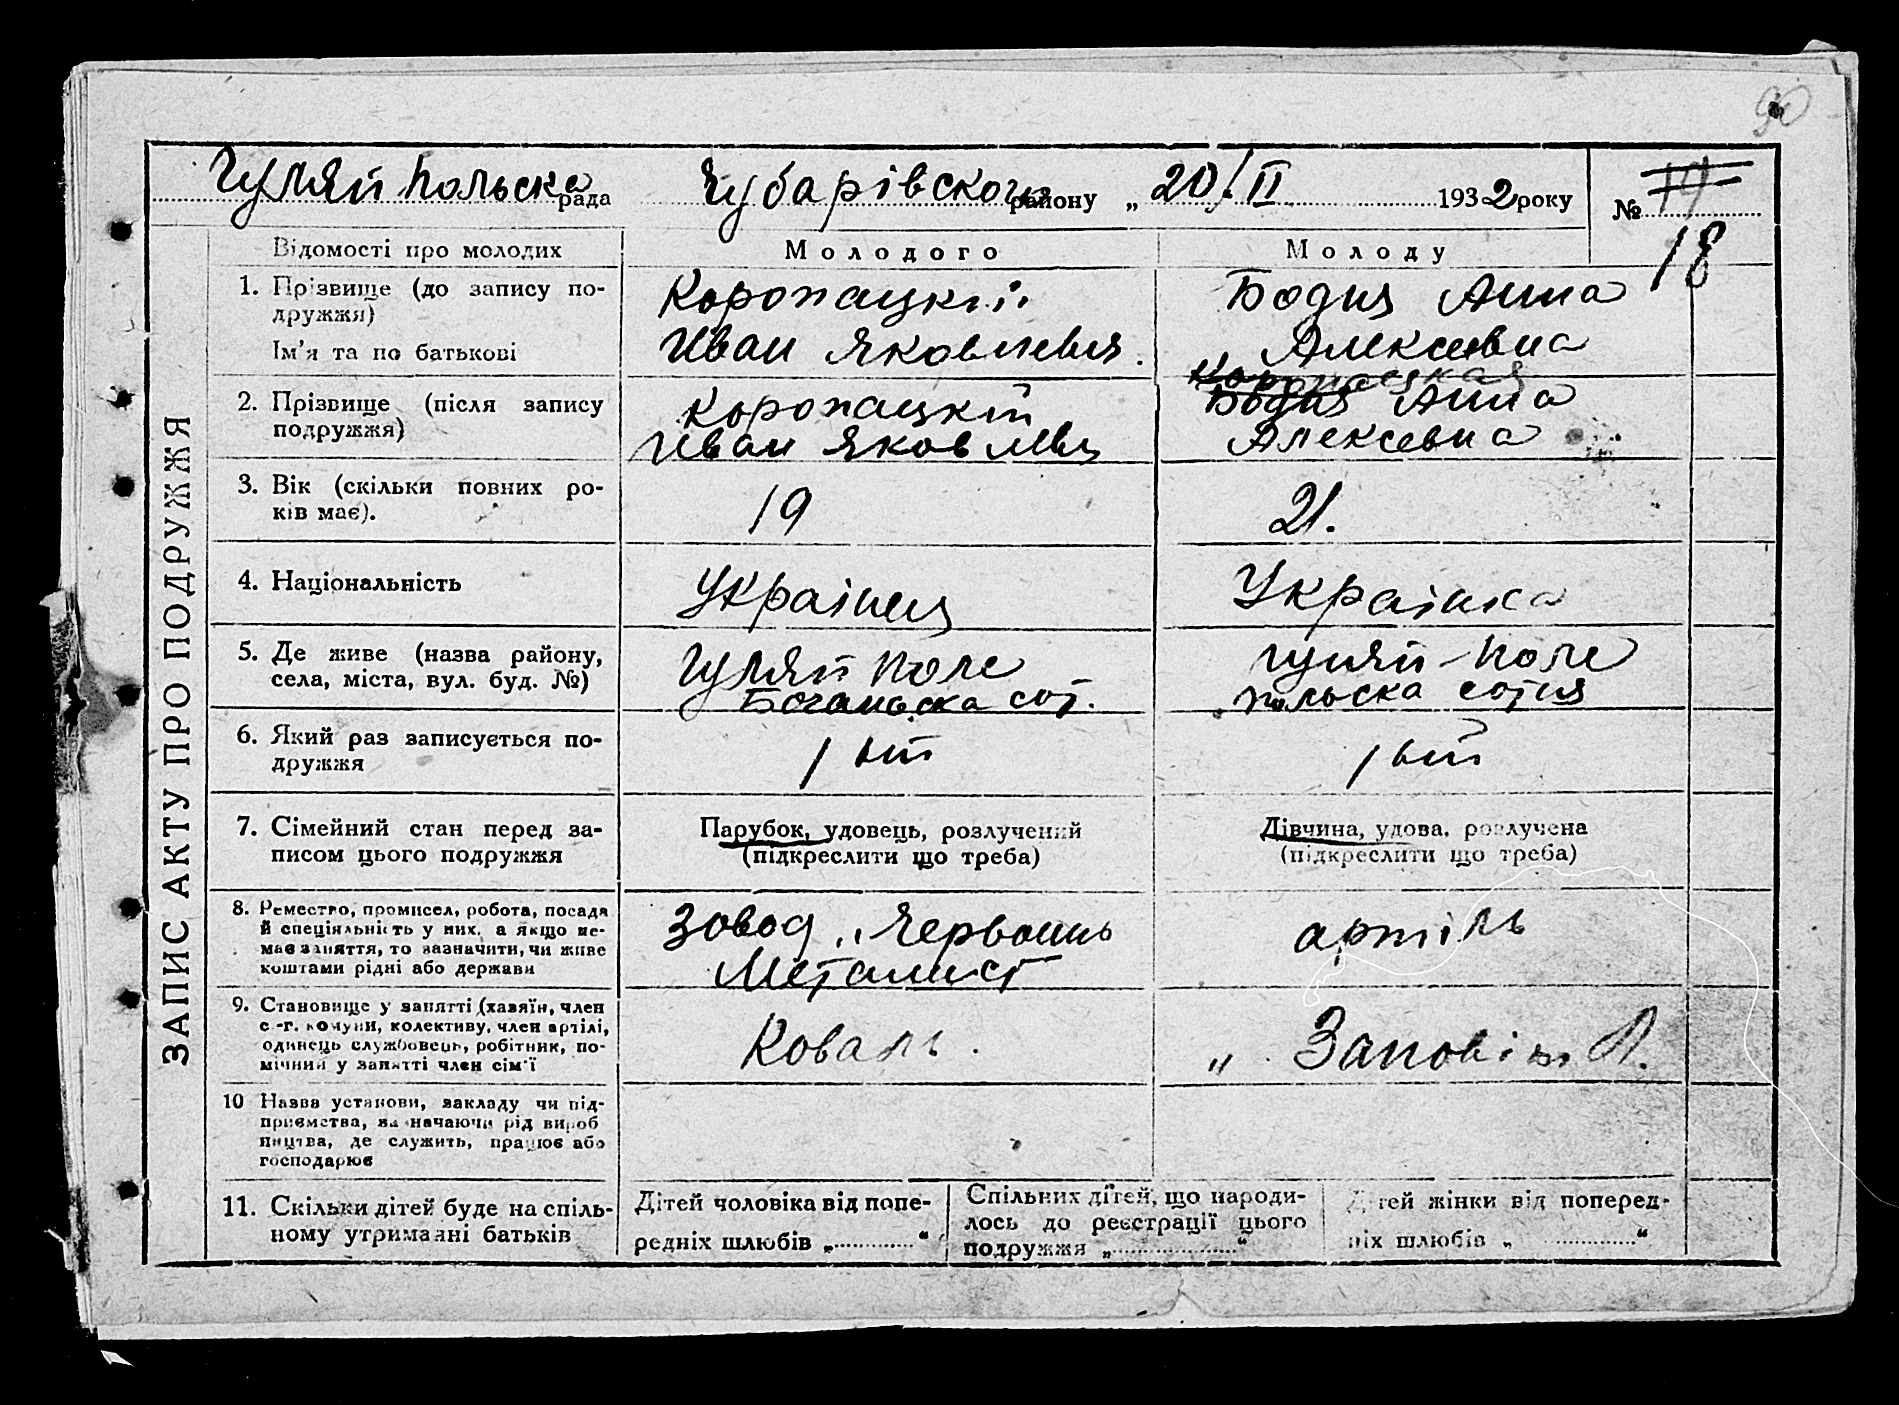 90
Гуляй польска рада Чубарівского району „ 20/II 1932 року № 19
18
ЗАПИС АКТУ ПРО ПОДРУЖЖЯ
Відомості про молодих
Молодого
Молоду
1. Прізвище (до запису по-
дружжя)
Ім'я та по батькові
Коропацкій
Иван Яковлевич.
Бодня Анна
Алексеевна
2. Прізвище (після запису
подружжя)
Коропацкій
Иван Яковлевич
Коропацкая
Бодня Анна
Алексевна
3. Вік (скільки повних ро-
ків має).
19
21.
4. Національність
Українец
Українка
5. Де живе (назва району,
села, міста, вул. буд. №)
Гуляй поле
сот.
Гуляй-поле
польска сотня
6. Який раз записується по-
дружжя
1 ый
1 ый
7. Сімейний стан перед за-
писом цього подружжя
Парубок, удовець, розлучений
(підкреслити що треба)
Дівчина, удова, розлучена
(підкреслити що треба)
8. Ремество, промисел, робота, посада
й спеціяльність у них, а якщо не-
має заняття, то зазначити, чи живе
коштами рідні або держави
Завод „Червонць
Металист
артіль
9. Становище у занятті (хазяїн, член
с.-г. комуни, колективу, член артілі,
одинець службовець, робітник, по-
мічний у занятті член сім'ї
Коваль.
„ Заповіт Л.
10 Назва установи, закладу чи під-
приємства, зазначаючи рід вироб
ництва, де служить, працює або
господарює
11. Скільки дітей буде на спіль-
ному утриманні батьків
Дітей чоловіка від попе-
редніх шлюбів „ “
Спільних дітей, що народи-
лось до реєстрації цього
подружжя „ “
Дітей жінки від поперед-
ніх шлюбів „ “